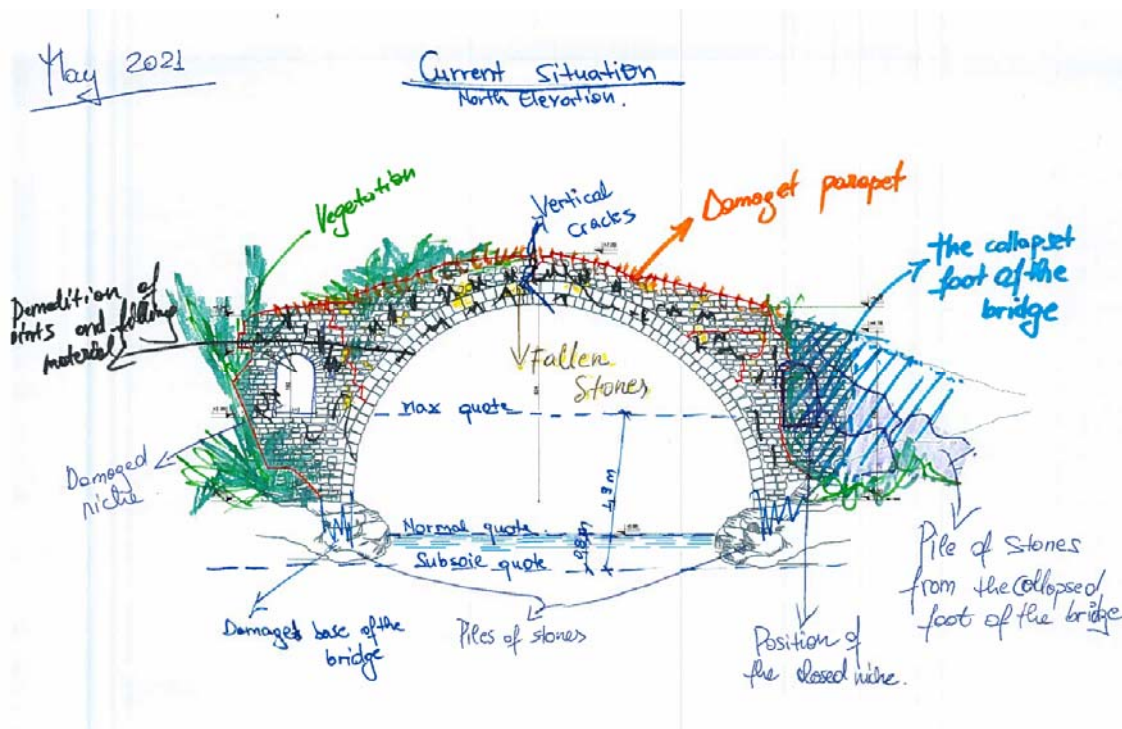 May 2021
Current Situation
North Elevation.
Vegetation
Vertical
cracks
Damaget parapet
the collapset
foot of the
bridge
Demolition of
oints and filling
material
Fallen
Stones
max quote
Damaged
niche
4.3 m
Normal quote
0.8 M
Subsoie quote
Damaget base of the
bridge
Piles of stones
Position of
the closed niche.
Pile of Stones
from the collapsed
foot of the bridge